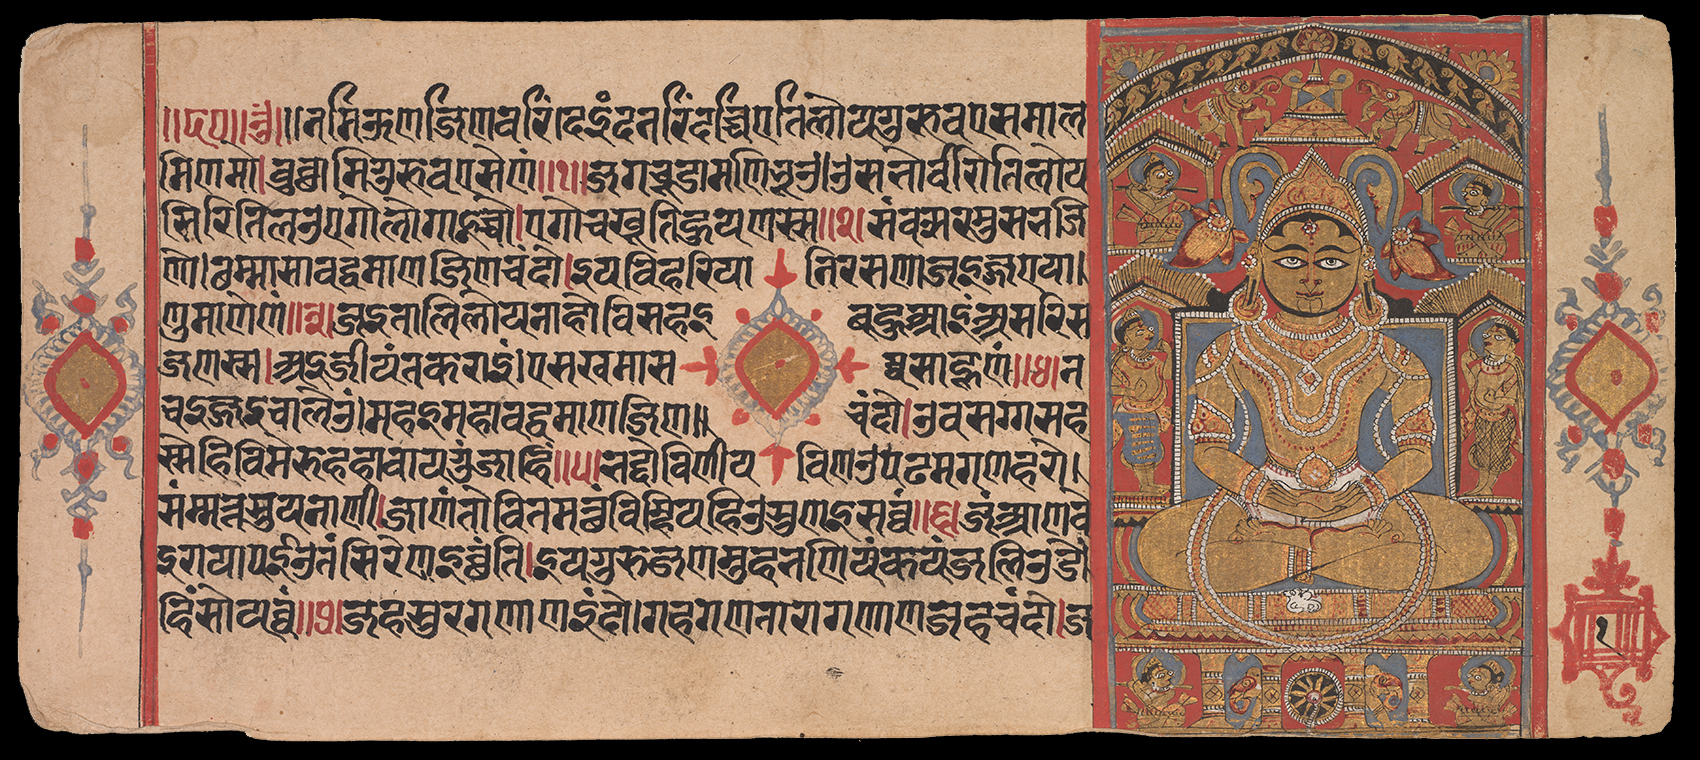 ॥ॐ॥ नमिऊण जिणवरिंदे इंदनरिंदच्चिए तिलोयगुरु उवएसमाल
मिणमो। वुच्छामि गुरुवएसेणं॥१॥ जगचूडामणिभूओ उसभो वीरो तिलोय
सिरितिलओ एगो लोगाइच्चो। एगो चखू तिहुयणस्स॥२॥ संवच्छरमुसभजि
णो। छम्मासा वद्धमाणजिणचंदो। इय विहरिया निरसणा जइज्ज एया।
णुमाणेणं॥३॥ जइ ता तिलोयनाहो विसहइ बहुआइं असरिस
जणस्स। अइजीयंतकराइं। एस खमा स व्वसाहूणं॥४॥ न
चइज्जइ चालेउं। महइमहावद्धमाणजिण॥ चंदो। उवसग्गसह
स्सेहि वि मेरु जहा वायगुंजाहिं॥५॥ भद्दो विणीय विणओ पढमगणहरो।
संमत्तसुयनाणी। जाणंतो वि तमत्थं विम्हियहिओ सुणइ सव्वं॥६॥ जं आणवे
इ राया पगईओ तं सिरेण इच्छंति। इय गुरुजणमुहभणियं कयंजलिउडे
हिं सोयव्वं॥७॥ जह सुरगणाण इंदो। गहगणतारागणाण जह चंदो। ज
१